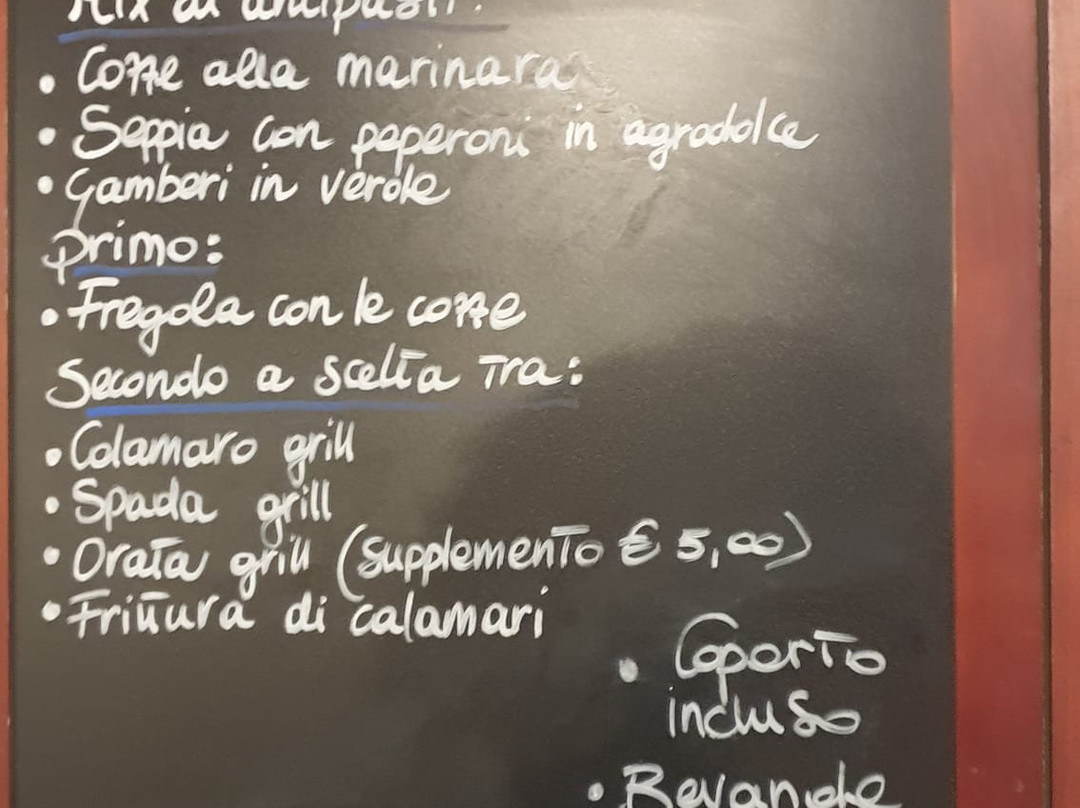 Mix di antipasti:
• Cozze alla marinara
• Seppia con peperoni in agrodolce
• Gamberi in verde
Primo:
• Fregola con le cozze
Secondo a scelta tra:
• Calamaro grill
• Spada grill
• Orata grill (supplemento € 5,00)
• Frittura di calamari
• Coperto
incluso
• Bevande